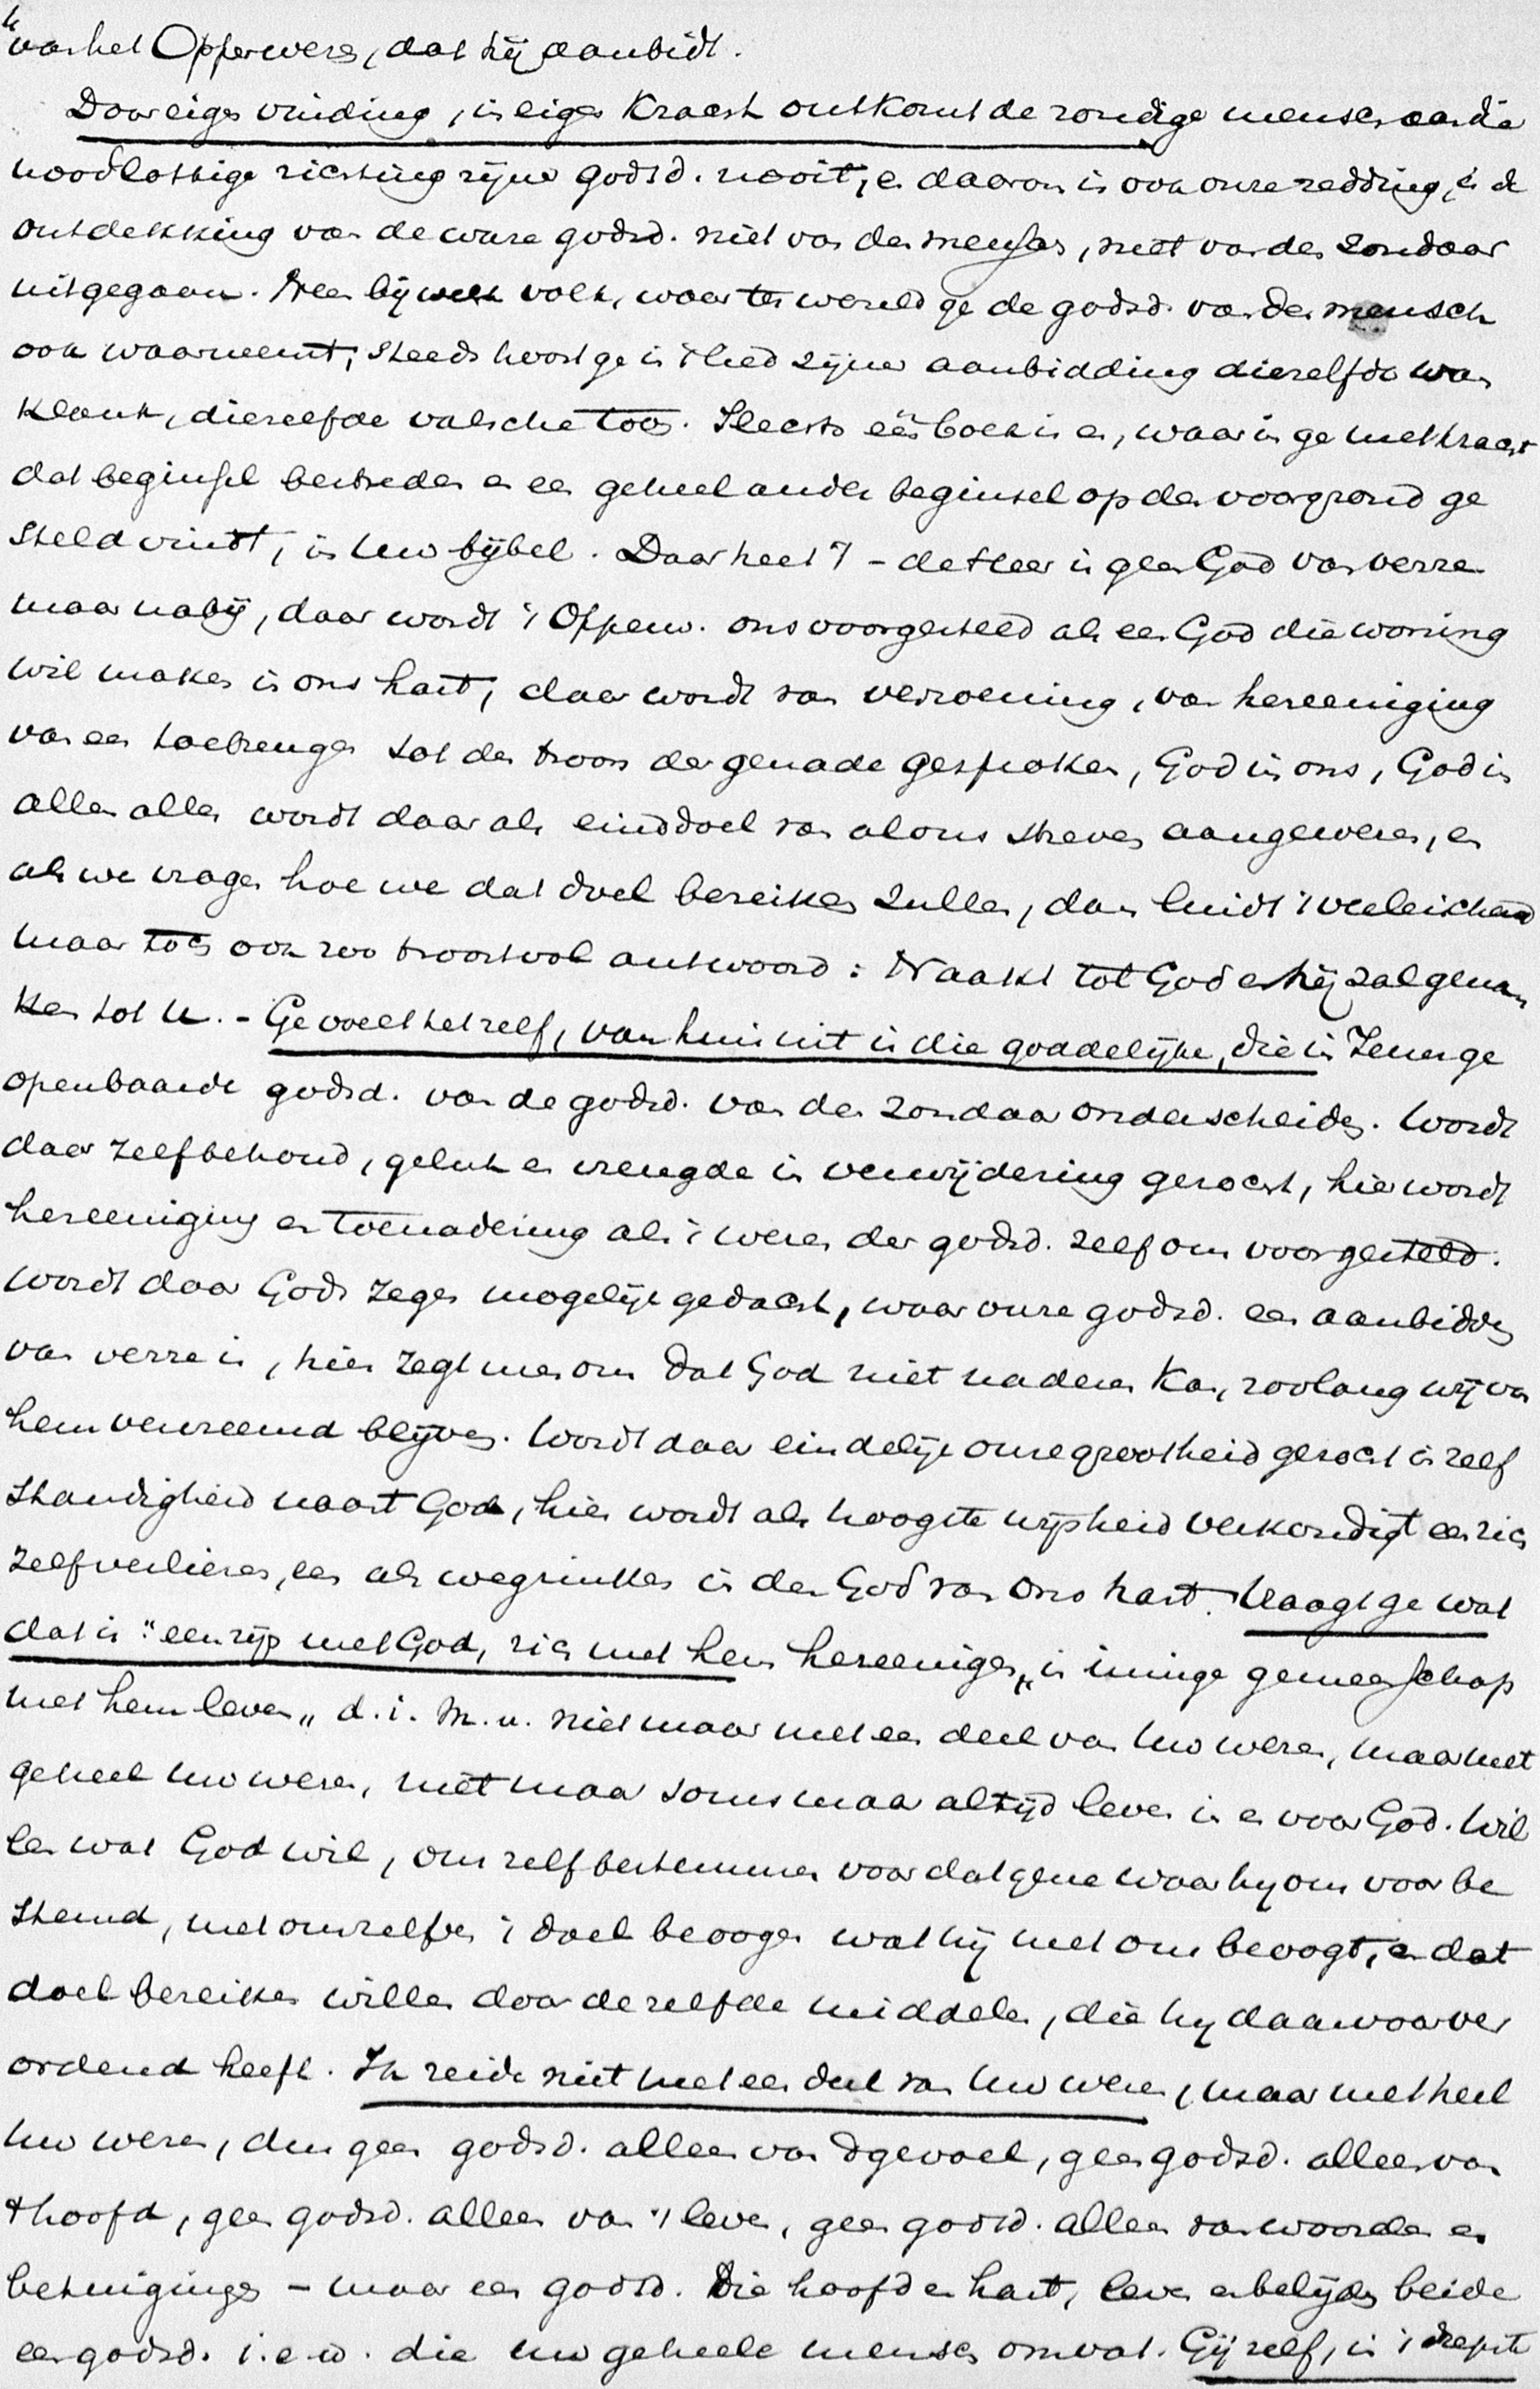 van het Opperwezen, dat hij aanbidt.
Door eigen vinding, in eigen kracht ontkomt de zondige mensch aan die
noodlottige richting zijner godsd. nooit, en daarom is ook onze redding, is de
ontdekking van de ware godsd. niet van den mensch, niet van den zondaar
uitgegaan. Neen bij welk volk, waar ter wereld ge de godsd. van den mensch
ook waarneemt, steeds hoort ge in 't lied zijner aanbidding diezelfde wan
klank, diezelfde valsche toon. Slechts één boek is er, waarin ge met kracht
dat beginsel bestreden en een geheel ander beginsel op den voorgrond ge
steld vindt, in Uw bijbel. Daar heet 't - de Heer is geen God van verre
maar nabij, daar wordt 't Opperw. ons voorgesteld als een God die woning
wil maken in ons hart, daar wordt van verzoening, van hereeniging
van een toebrengen tot den troon der genade gesproken, God in ons, God in
allen alles wordt daar als einddoel van al ons streven aangewezen, en
als we vragen hoe we dat doel bereiken zullen, dan luidt 't veeleischend
maar toch ook zoo troostvol antwoord: Naakt tot God en hij zal gena
ken tot U. - Ge voelt het zelf, van huis uit is die goddelijke, die in Jezus ge
openbaarde godsd. van de godsd. van den zondaar onderscheiden. Wordt
daar zelfbehoud, geluk en vreugde in verwijdering gezocht, hier wordt
hereeniging en toenadering als 't wezen der godsd. zelf ons voorgesteld.
Wordt daar Gods zegen mogelijk gedacht, waar onze godsd. een aanbidden
van verre is, hier zegt men ons dat God niet naderen kan, zoolang wij van
hem vervreemd blijven. Wordt daar eindelijk onze grootheid gezocht in zelf
standigheid naast God, hier wordt als hoogste wijsheid verkondigt een zich
zelf verliezen, een als wegzinken in den God van ons hart. Vraagt ge wat
dat is "een zijn met God, zich met hem hereenigen, in innige gemeenschap
met hem leven" d.i. m.u. niet maar met een deel van Uw wezen, maar met
geheel Uw wezen, niet maar soms maar altijd leven in en voor God. Wil
len wat God wil, ons zelf bestemmen voor datgene waar hij ons voor be
stemd, met ons zelven 't doel beoogen wat hij met ons beoogt, en dat
doel bereiken willen door dezelfde middelen, die hij daarvoor ver
ordend heeft. Ik zeide niet met een deel van Uw wezen, maar met heel
Uw wezen, dus geen godsd. alleen van 't gevoel, geen godsd. alleen van
't hoofd, geen godsd. alleen van 't leven, geen godsd. alleen van woorden en
betuigingen - maar een godsd. die hoofd en hart, leven en belijden beide
een godsd. i.e.w. die uw geheele mensch omvat. Gij zelf, in 't diepste